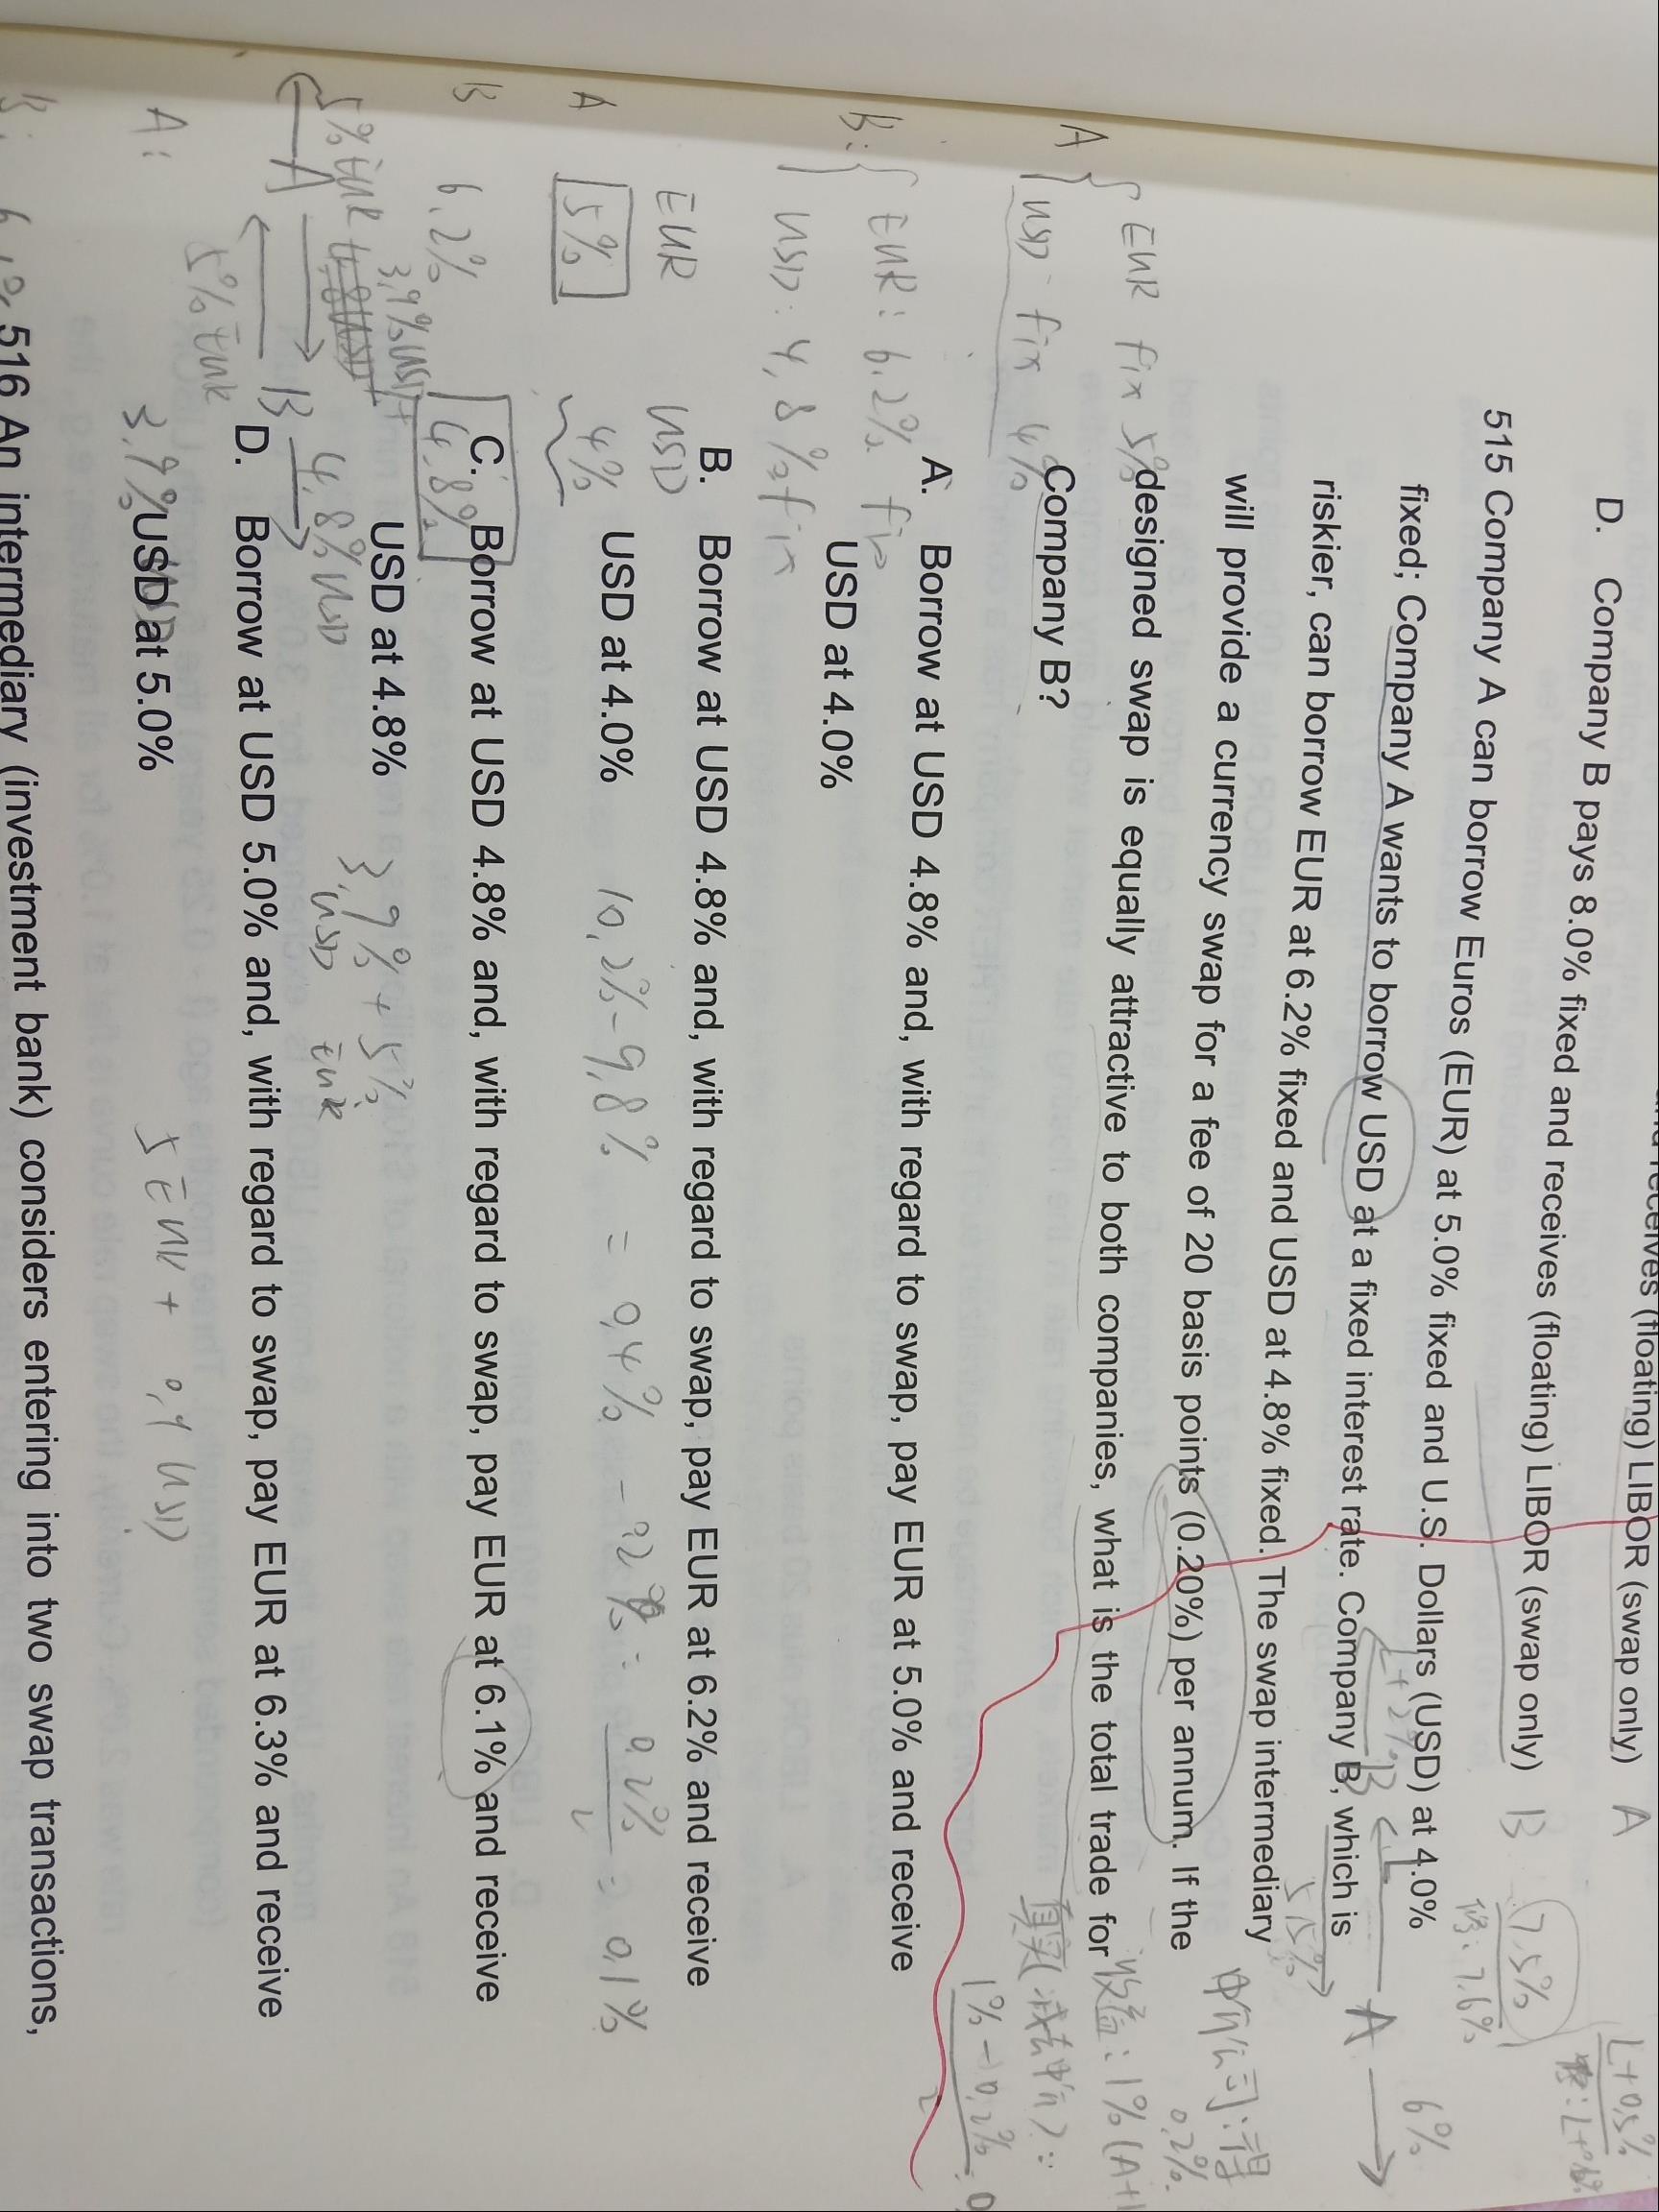 receives (floating) LIBOR (swap only) A
D. Company B pays 8.0% fixed and receives (floating) LIBOR (swap only) B
7.5%
L+0.5%
7.6%
515 Company A can borrow Euros (EUR) at 5.0% fixed and U.S. Dollars (USD) at 4.0%
fixed; Company A wants to borrow USD at a fixed interest rate. Company B, which is
riskier, can borrow EUR at 6.2% fixed and USD at 4.8% fixed. The swap intermediary
will provide a currency swap for a fee of 20 basis points (0.20%) per annum. If the
designed swap is equally attractive to both companies, what is the total trade for
Company B?
B
L
A
6%
中间公司:得
0.2%
收益:1%(A+
真实(
1%-0.2%
2
A EUR fix 5%
USD fix 4%
B: EUR: 6.2% fix
USD: 4.8% fix
A. Borrow at USD 4.8% and, with regard to swap, pay EUR at 5.0% and receive
USD at 4.0%
EUR USD
B. Borrow at USD 4.8% and, with regard to swap, pay EUR at 6.2% and receive
USD at 4.0%
A 5% 4%
10.2%-9.8% = 0.4%
0.2%
2
= 0.1%
B 6.2% 4.8%
C. Borrow at USD 4.8% and, with regard to swap, pay EUR at 6.1% and receive
USD at 4.8%
3.9% USD
5% EUR
A
B
4.8% USD
3.9% + 5%
USD EUR
5% EUR
D. Borrow at USD 5.0% and, with regard to swap, pay EUR at 6.3% and receive
USD at 5.0%
A:
3.9% USD
5 EUR +
USD
B:
516 An intermediary (investment bank) considers entering into two swap transactions,